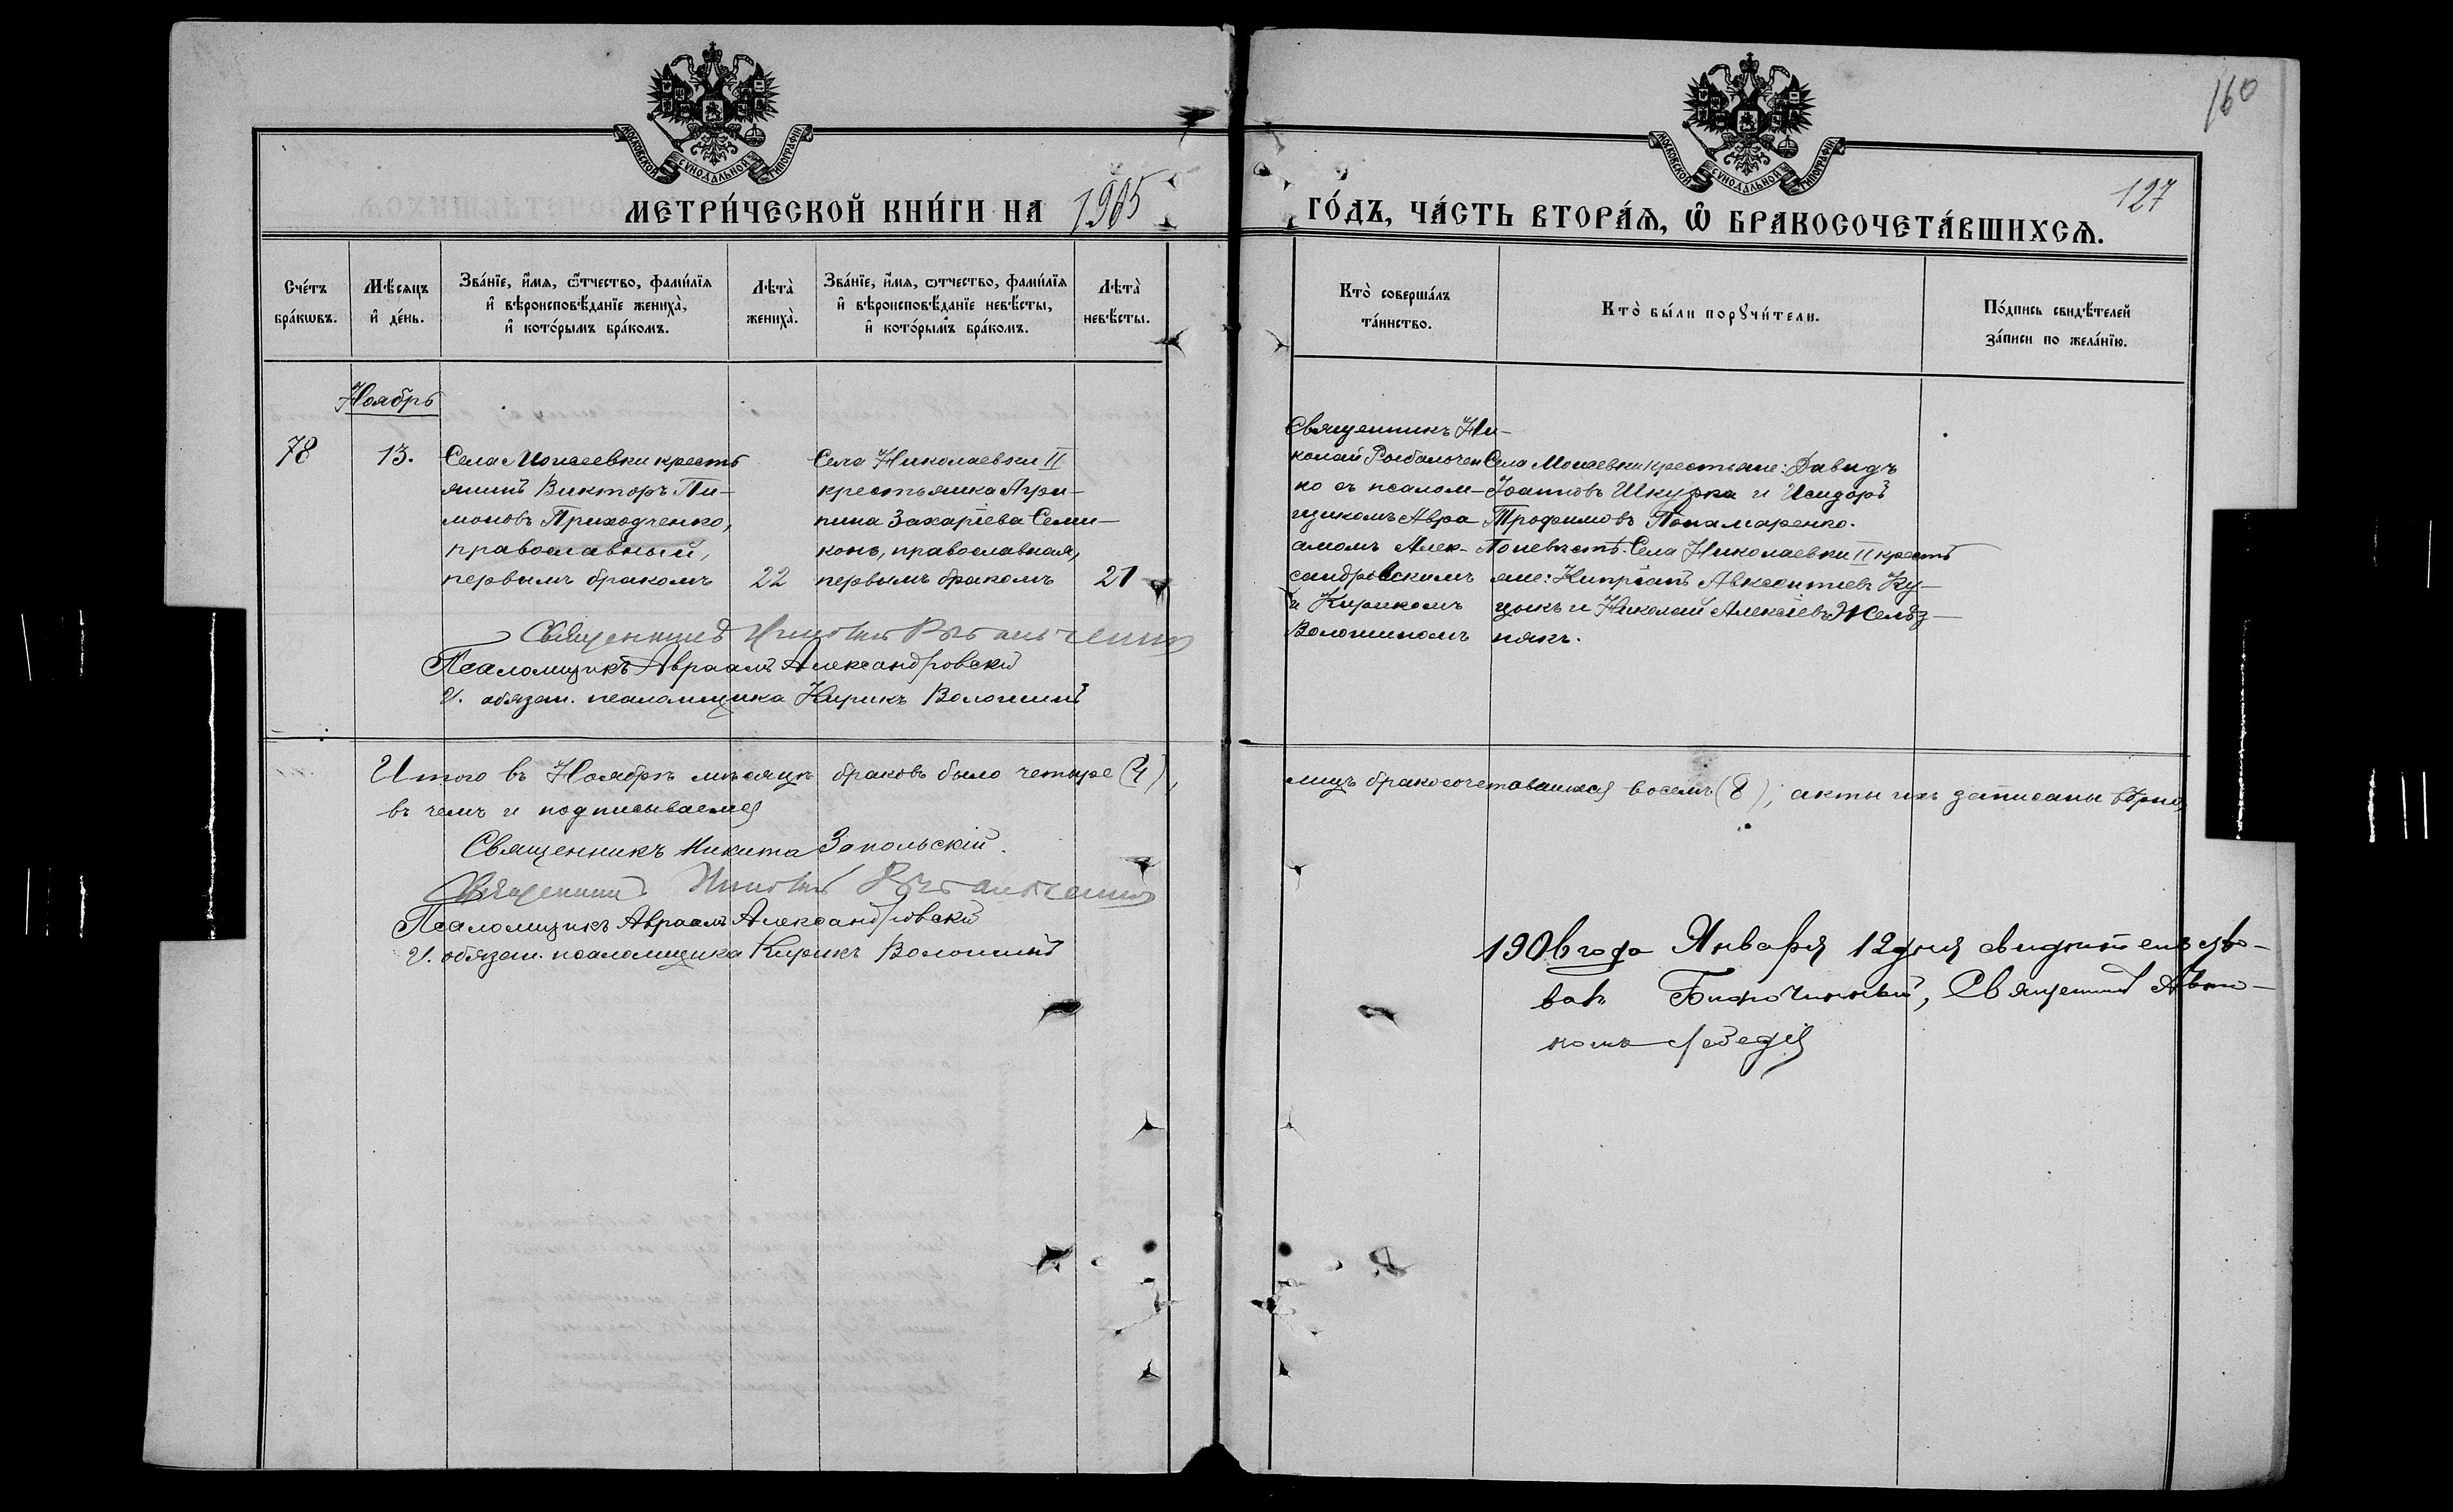 160
127
МОСКОВСКОЙ СУНОДАЛЬНОЙ ТИПОГРАФІИ
МОСКОВСКОЙ СУНОДАЛЬНОЙ ТИПОГРАФІИ
МЕТРИ́ЧЕСКОЙ КНИ́ГИ НА 1905
ГО́ДЪ, ЧА́СТЬ ВТОРА́Ѧ, Ѿ БРАКОСОЧЕТА́ВШИХСѦ.
Сче́тъ
бра́кѡвъ.
Мѣ́сяцъ
и҆ де́нь.
Зва́нїе, и҆́мя, ѻ҆́тчество, фами́лїя
и҆ вѣроисповѣ́данїе жениха̀,
и҆ кото́рымъ бра́комъ.
Лѣта̀
жениха̀.
Зва́нїе, и҆́мя, ѻтчество, фами́лїя
и҆ вѣроисповѣ́данїе невѣ́сты,
и҆ кото́рымъ бра́комъ.
Лѣта̀
невѣ́сты.
Кто̀ соверша́лъ
та́инство.
Кто̀ бы́ли порꙋчи́тели.
По́дпись свидѣ́телей
за́писи по жела́нїю.
Ноябрь
78
13.
Села Моисеевки кресть
янинъ Викторъ Пи-
моновъ Приходченко,
православный,
первымъ бракомъ
22
Села Николаевки II
крестьянка Агри-
пина Захаріева Семи-
конь, православная,
первымъ бракомъ
21
Священникъ Ни-
колай Рыбальчен
ко съ псалом-
щикомъ Авра
амомъ Алек-
сандровскимъ
и Кирикомъ
Волошиномъ
Села Моисеевки крестьяне: Давидъ
Іоанновъ Шкурка и Исидоръ
Трофимовъ Понамаренко.
По невѣстѣ: Села Николаевки II кресть
яне: Кипріанъ Авксентіевъ Ку-
цыкъ и Николай Алексѣевъ Желѣз-
някъ.
Священникъ Николай Рыбальченко
Псаломщикъ Авраамъ Александровскій
И. обязан. псаломщика Кирикъ Волошинъ
Итого въ Ноябрѣ мѣсяцѣ браковъ было четыре (4),
лицъ бракосочетавшихся восемь (8), акты ихъ записаны вѣрно,
въ чемъ и подписываемся
Священникъ Никита Запольскій.
Священникъ Николай Рыбальченко
Псаломщикъ Авраамъ Александровскій
И. обязан. псаломщика Кирикъ Волошинъ
1906 года Января 12 дня свидѣтельство-
валъ Благочинный, Священникъ